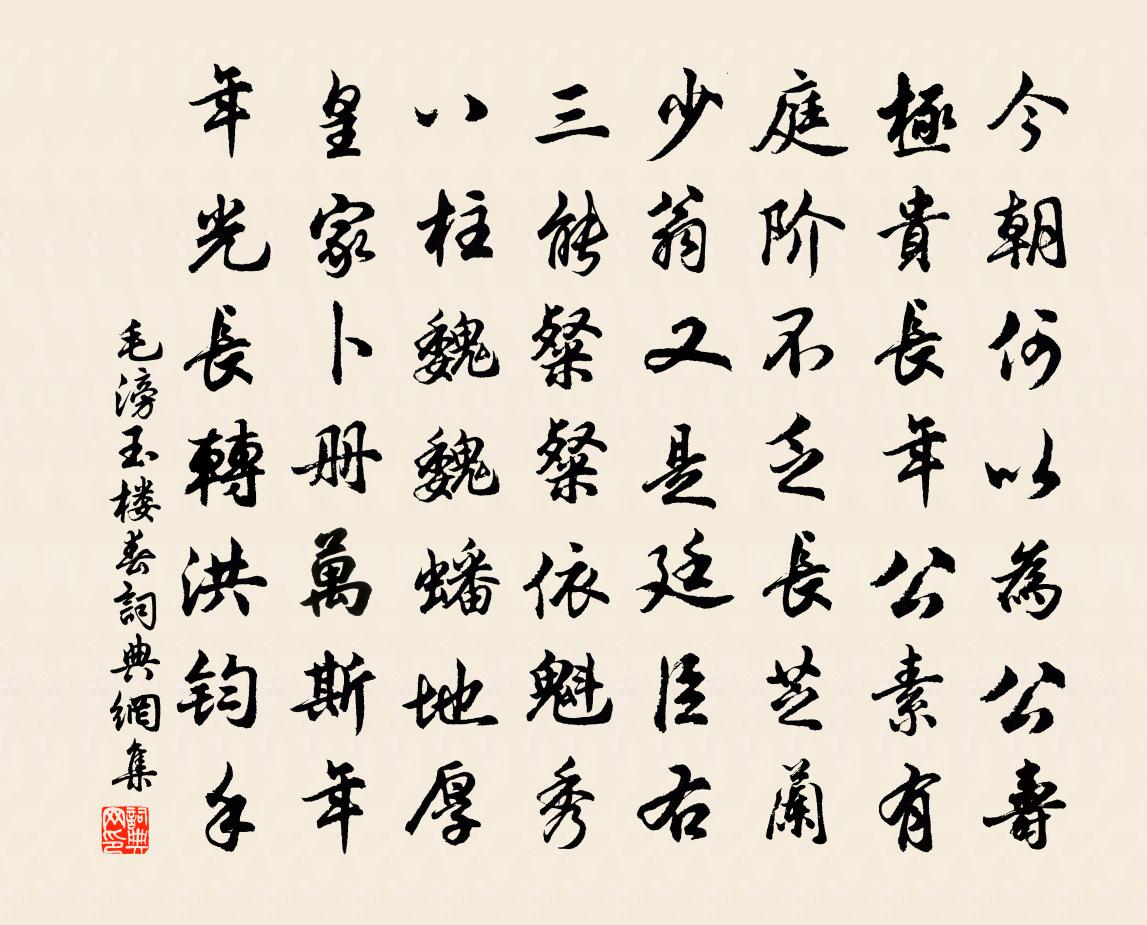 今朝何以為公壽
極貴長年公素有
庭阶不乏長芝蘭
少翁又是廷臣右
三能粲粲依魁秀
八柱魏魏蟠地厚
皇家卜册萬斯年
年光長轉洪鈞手
毛滂玉楼春詞典網集
詞典网印